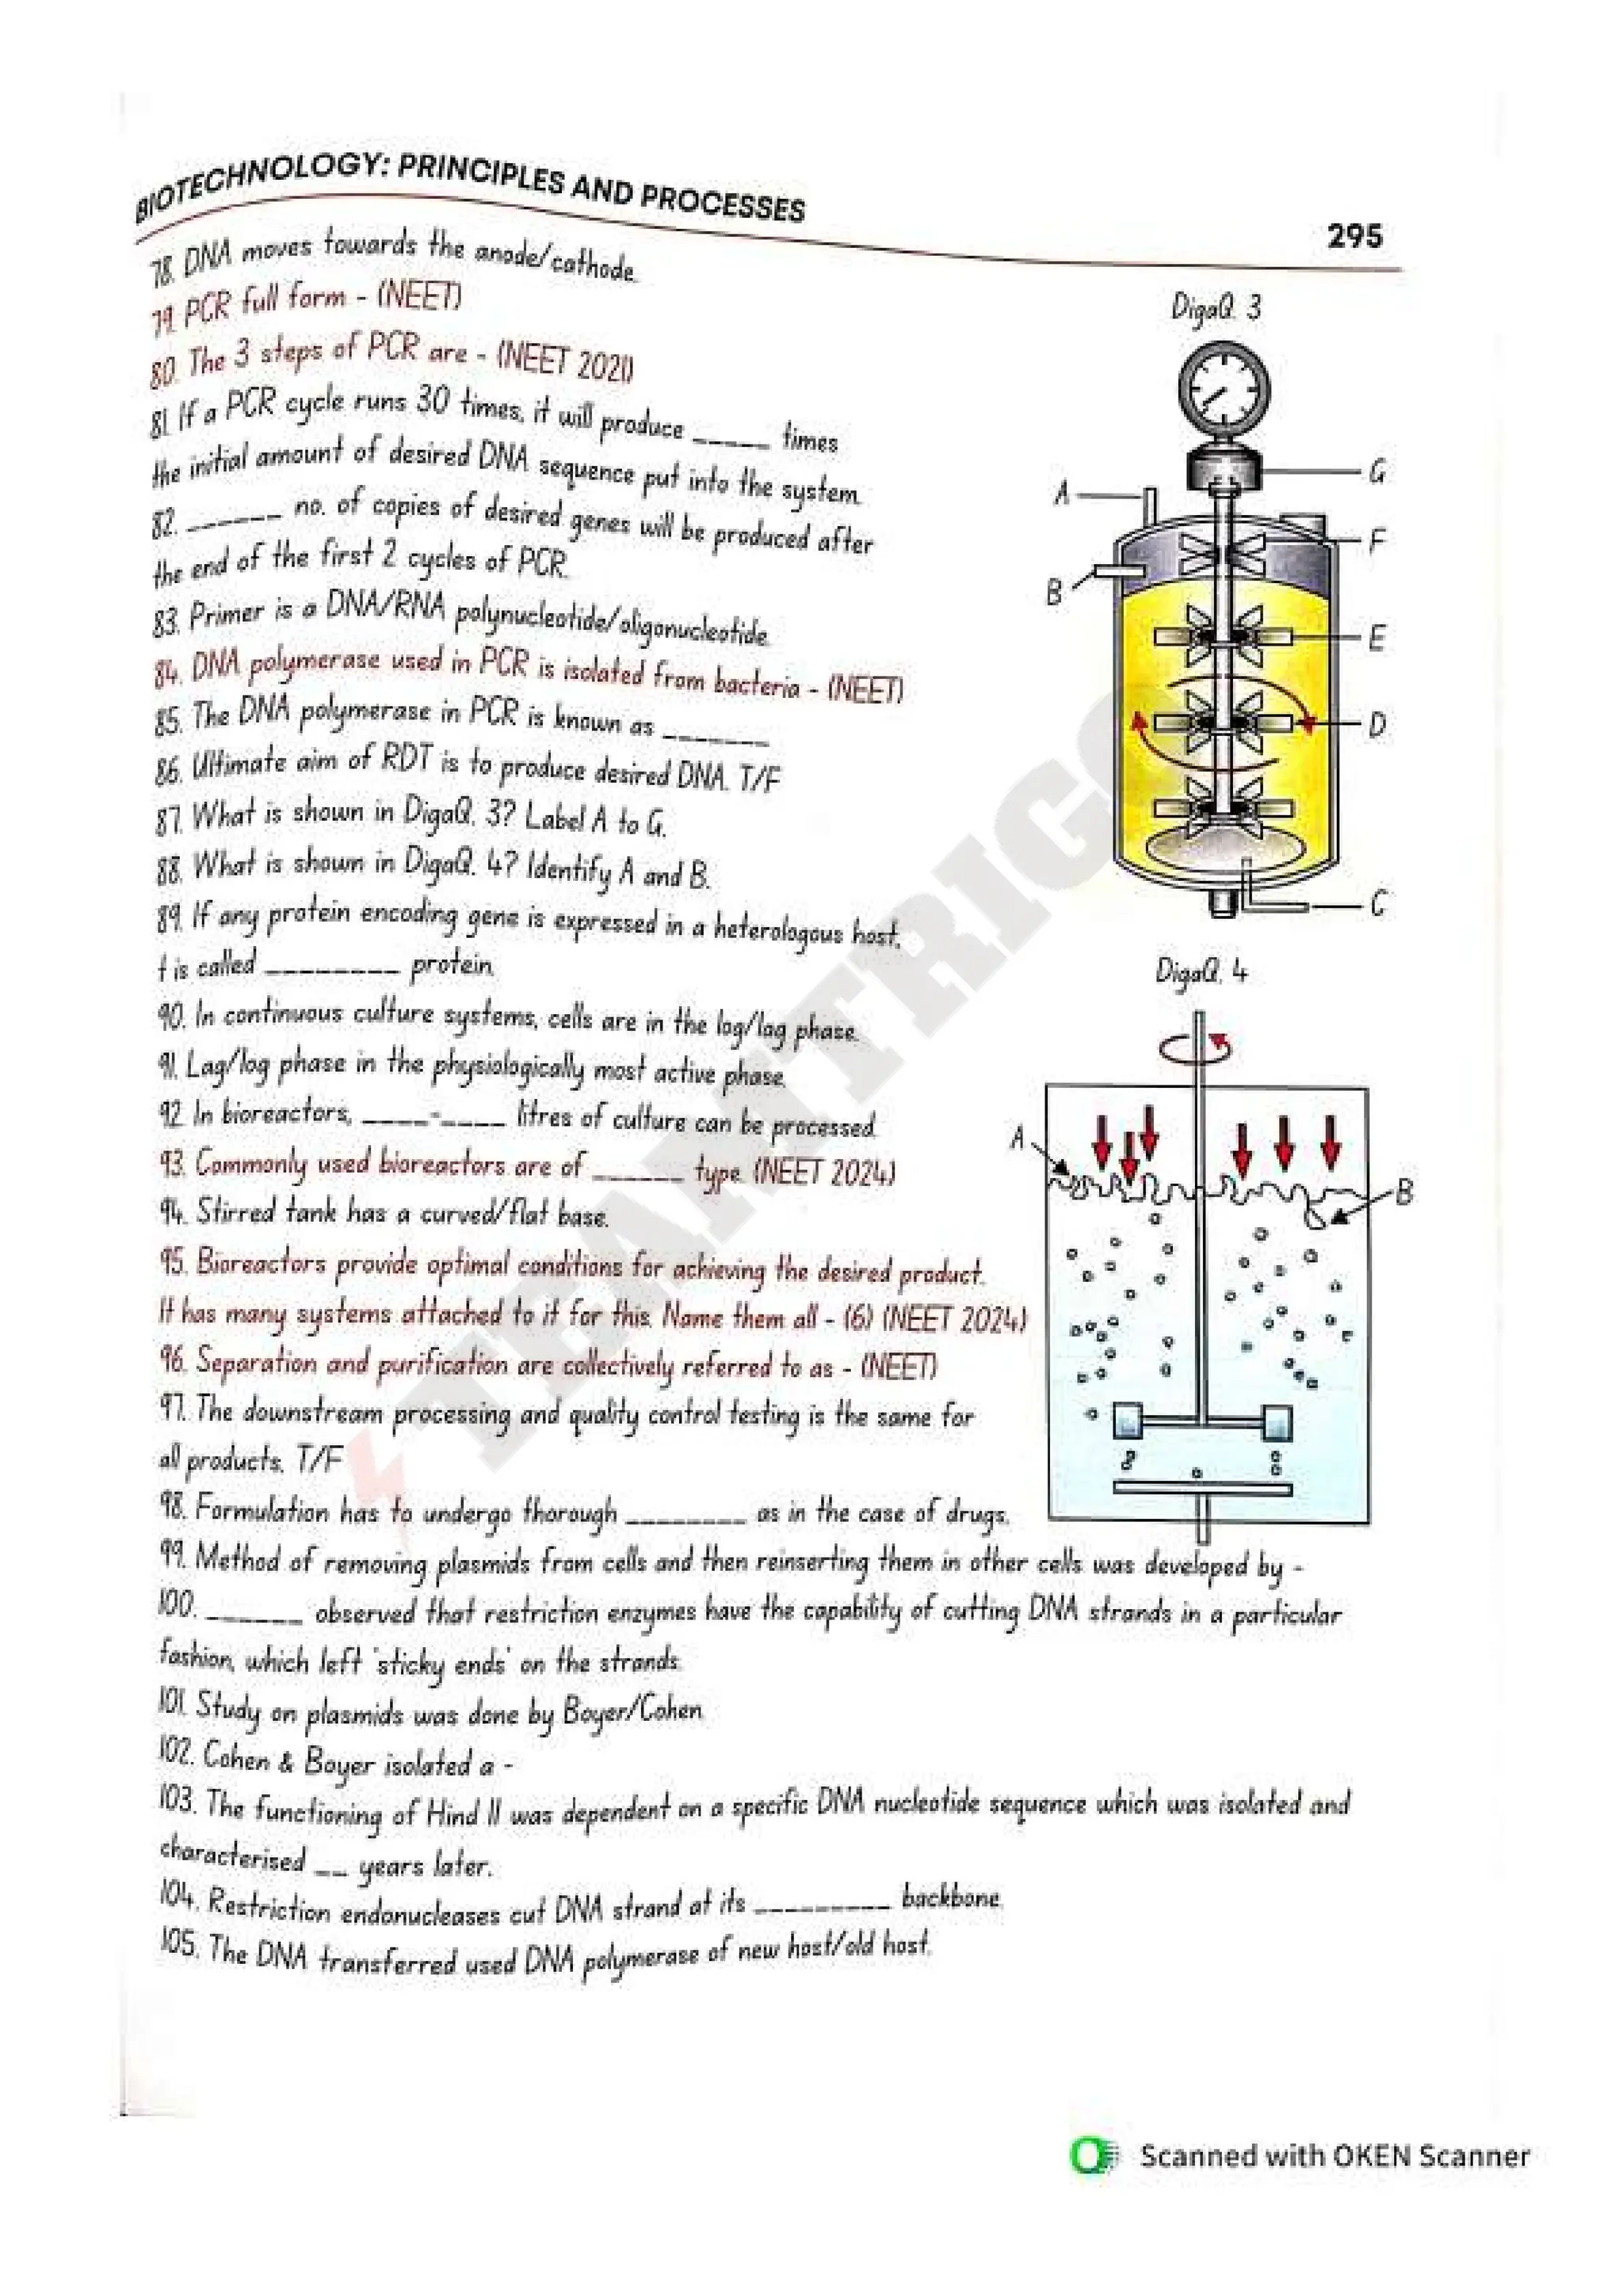 BIOTECHNOLOGY: PRINCIPLES AND PROCESSES
295
78. DNA moves towards the anode/cathode.
79. PCR full form - (NEET)
80. The 3 steps of PCR are - (NEET 2021)
81. If a PCR cycle runs 30 times, it will produce _____ times
the initial amount of desired DNA sequence put into the system.
82. ______ no. of copies of desired genes will be produced after
the end of the first 2 cycles of PCR.
83. Primer is a DNA/RNA polynucleotide/oligonucleotide.
84. DNA polymerase used in PCR is isolated from bacteria - (NEET)
85. The DNA polymerase in PCR is known as _______
86. Ultimate aim of RDT is to produce desired DNA. T/F
87. What is shown in DigaQ. 3? Label A to G.
88. What is shown in DigaQ. 4? Identify A and B.
89. If any protein encoding gene is expressed in a heterologous host,
t is called _________ protein.
90. In continuous culture systems, cells are in the log/lag phase.
91. Lag/log phase in the physiologically most active phase.
92. In bioreactors, ____-____ litres of culture can be processed.
93. Commonly used bioreactors are of ______ type. (NEET 2024)
94. Stirred tank has a curved/flat base.
95. Bioreactors provide optimal conditions for achieving the desired product.
It has many systems attached to it for this. Name them all - (6) (NEET 2024)
96. Separation and purification are collectively referred to as - (NEET)
97. The downstream processing and quality control testing is the same for
all products. T/F
98. Formulation has to undergo thorough ________ as in the case of drugs.
99. Method of removing plasmids from cells and then reinserting them in other cells was developed by -
100. ______ observed that restriction enzymes have the capability of cutting DNA strands in a particular
fashion, which left 'sticky ends' on the strands.
101. Study on plasmids was done by Boyer/Cohen
102. Cohen & Boyer isolated a -
103. The functioning of Hind II was dependent on a specific DNA nucleotide sequence which was isolated and
characterised __ years later.
104. Restriction endonucleases cut DNA strand at its _________ backbone.
105. The DNA transferred used DNA polymerase of new host/old host.
DigaQ. 3
A
G
F
B
E
D
C
DigaQ. 4
A
B
TEAMTRIGO
Scanned with OKEN Scanner